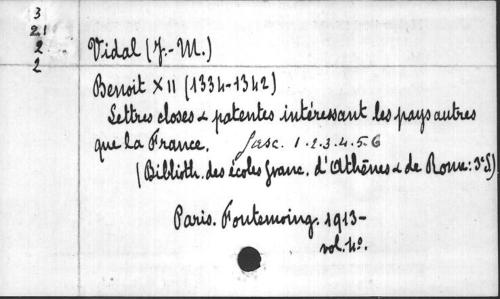 3
2,1
2
2
Vidal (J.-M.)
Benoit XII (1334-1342)
Lettres closes & patentes intéressant les pays autres
que la France. fasc. 1.2.3.4.5.6
(Biblioth. des écoles franç. d'Athènes & de Rome: 3e S)
Paris. Fontemoing. 1913-
vol. 4o.